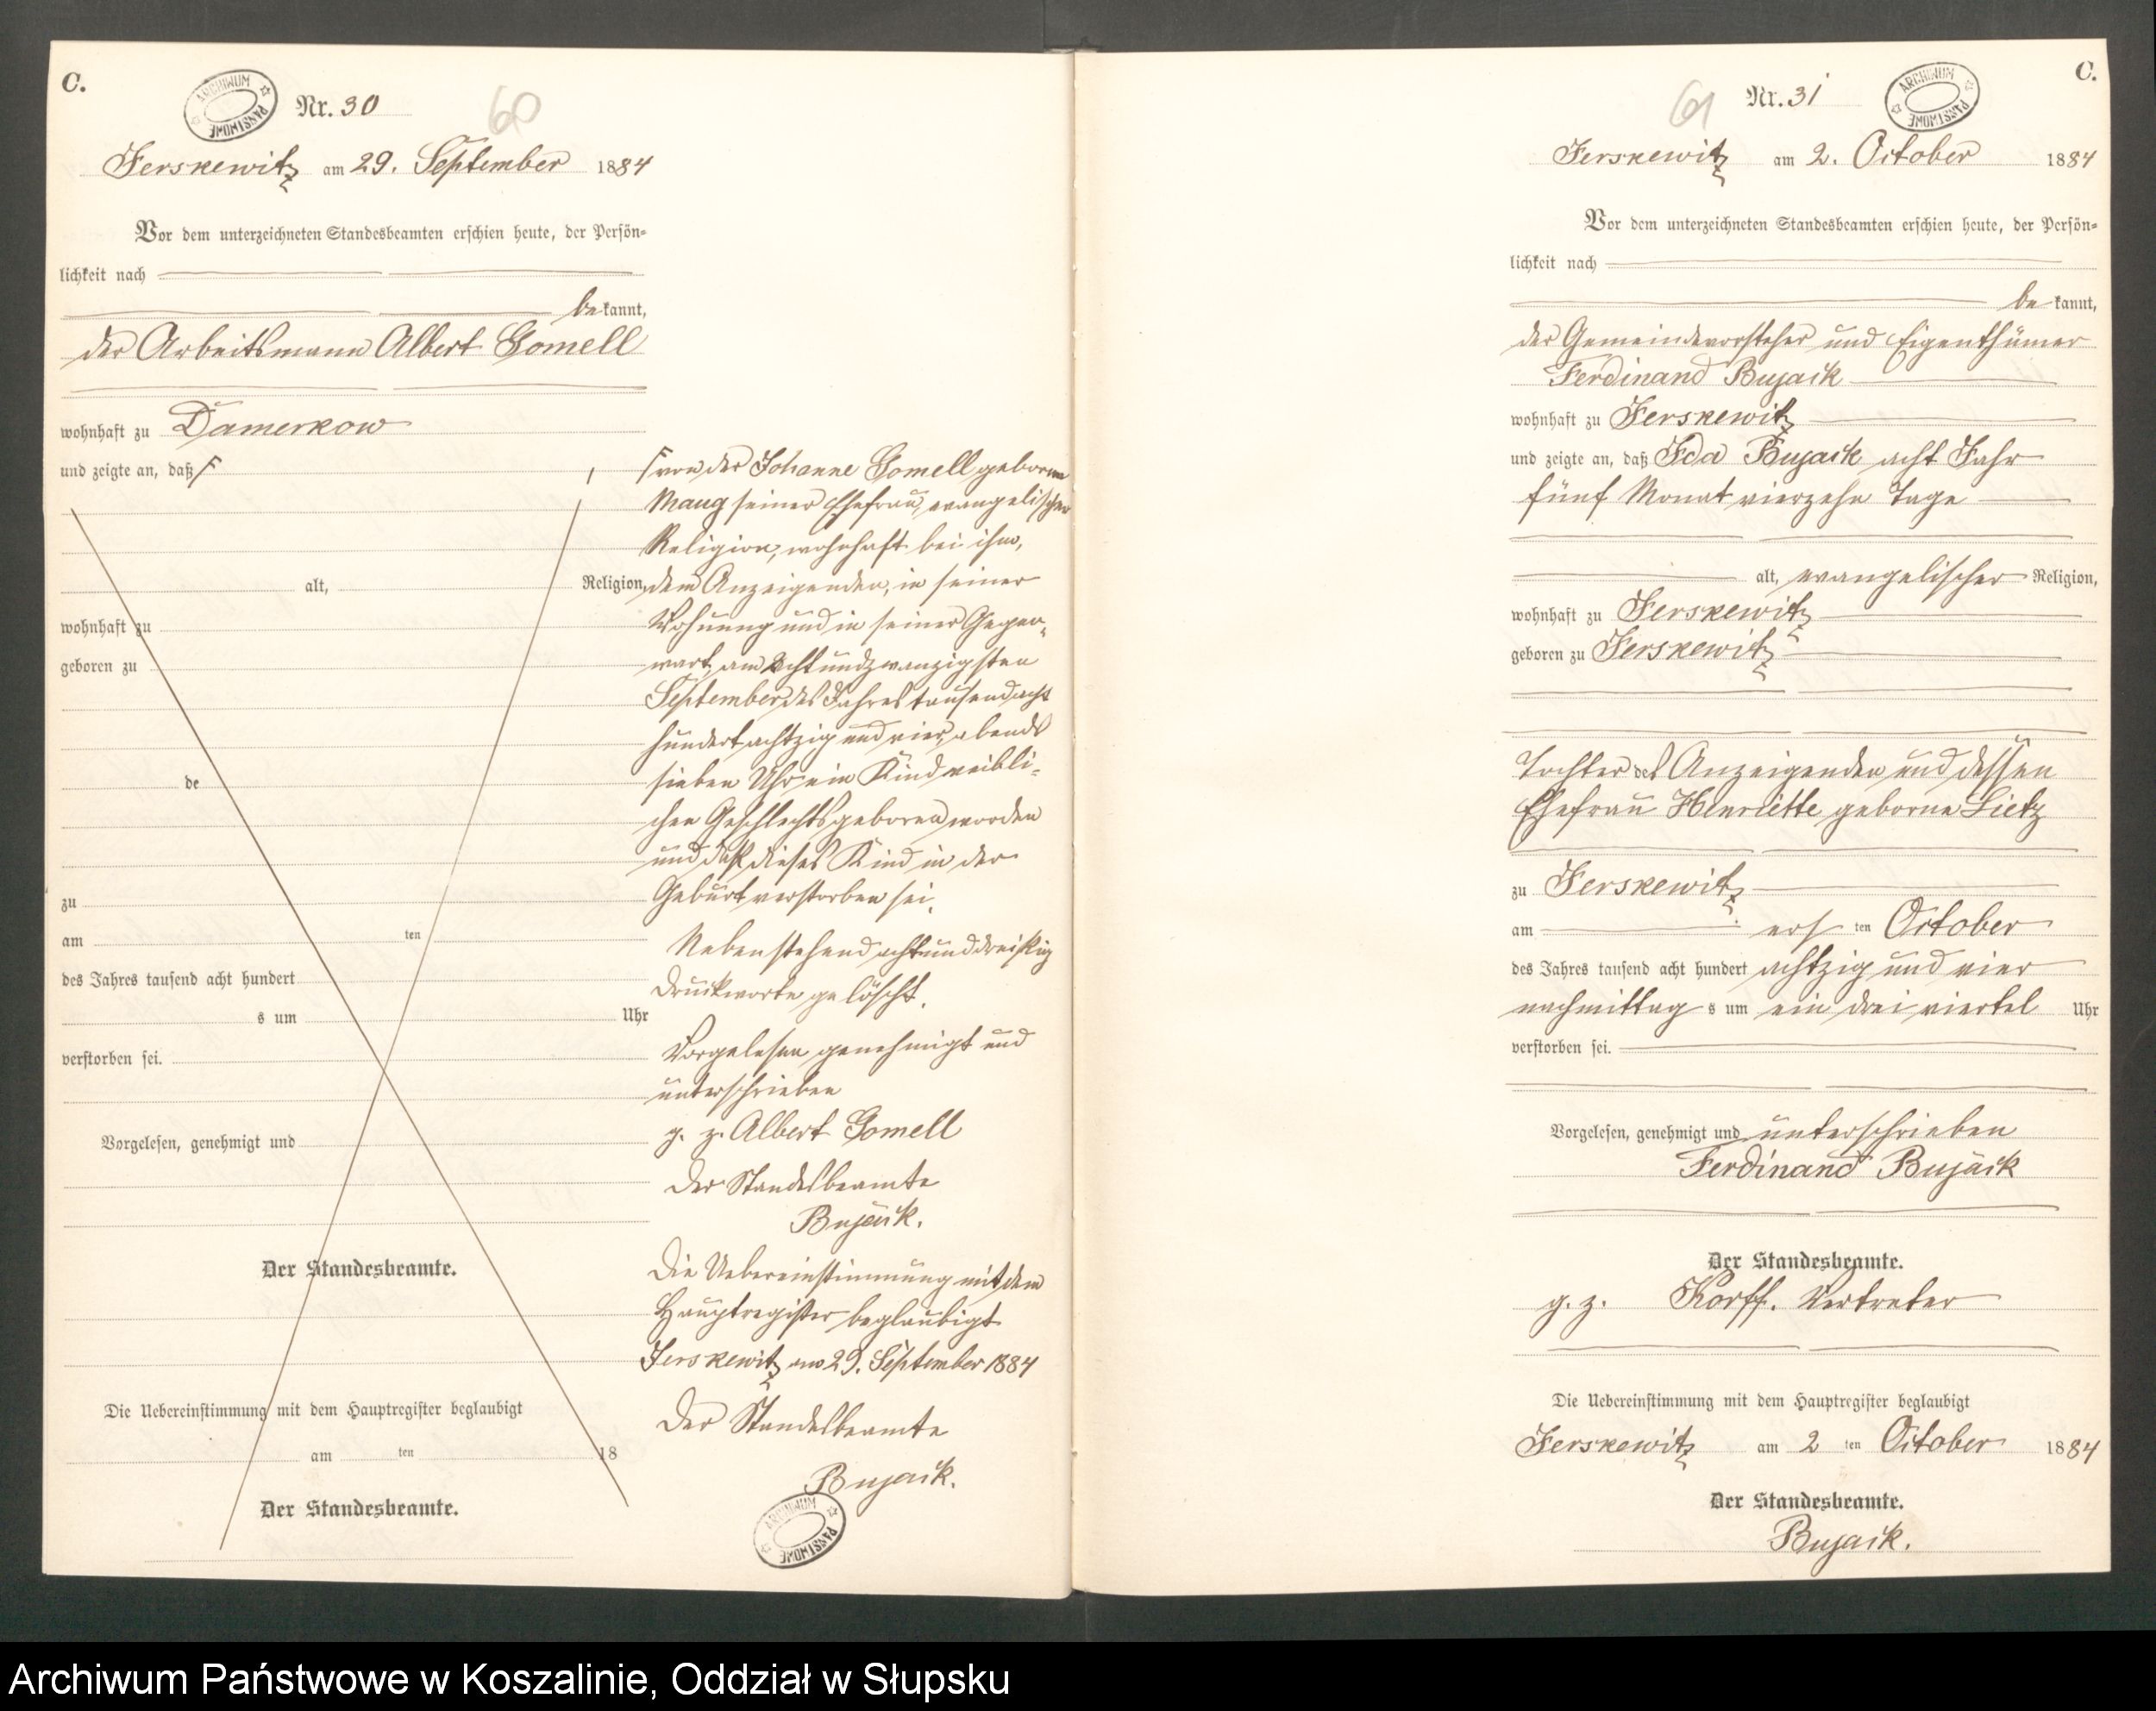 C.
ARCHIWUM PAŃSTWOWE
Nr. 30
60
Jerskewitz am 29. September 1884
Vor dem unterzeichneten Standesbeamten erschien heute, der Persön=
lichkeit nach
be kannt,
der Arbeitsmann Albert Gomell
wohnhaft zu Damerkow
und zeigte an, daß
alt, Religion,
wohnhaft zu
geboren zu
de
zu
am ten
des Jahres tausend acht hundert
s um Uhr
verstorben sei.
Vorgelesen, genehmigt und
Der Standesbeamte.
Die Uebereinstimmung mit dem Hauptregister beglaubigt
am ten 18
Der Standesbeamte.
von der Johanne Gomell geborene
seiner Ehefrau, evangelischer
Religion, wohnhaft bei ihm,
dem Anzeigenden, in seiner
Wohnung und in seiner Gegen=
wart, am achtundzwanzigsten
September des Jahres tausend acht
hundert achtzig und vier abends
sieben Uhr ein Kind weibli=
chen Geschlechts geboren worden
und daß dieses Kind in der
Geburt verstorben sei.
Nebenstehend achtunddreißig
Druckworte gelöscht.
Vorgelesen genehmigt und
unterschrieben
g. z. Albert Gomell
Der Standesbeamte
Bujack.
Die Uebereinstimmung mit dem
Hauptregister beglaubigt
Jerskewitz am 29. September 1884
Der Standesbeamte
Bujack.
ARCHIWUM PAŃSTWOWE
C.
ARCHIWUM PAŃSTWOWE
Nr. 31
61
Jerskewitz am 2. October 1884
Vor dem unterzeichneten Standesbeamten erschien heute, der Persön=
lichkeit nach
be kannt,
der Gemeindevorsteher und Eigenthümer
Ferdinand Bujack
wohnhaft zu Jerskewitz
und zeigte an, daß Ida Bujack acht Jahr
fünf Monat vierzehn Tage
alt, evangelischer Religion,
wohnhaft zu Jerskewitz
geboren zu Jerskewitz
Tochter des Anzeigenden und dessen
Ehefrau Henriette geborne Lietz
zu Jerskewitz
am ers ten October
des Jahres tausend acht hundert achtzig und vier
nachmittag s um ein drei viertel Uhr
verstorben sei.
Vorgelesen, genehmigt und unterschrieben
Ferdinand Bujack
Der Standesbeamte.
g. z. Korff. Vertreter
Die Uebereinstimmung mit dem Hauptregister beglaubigt
Jerskewitz am 2 ten October 1884
Der Standesbeamte.
Bujack.
Archiwum Państwowe w Koszalinie, Oddział w Słupsku